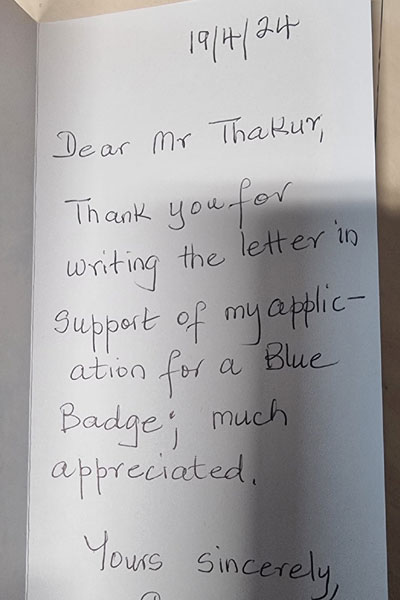 19/4/24
Dear Mr Thakur,
Thank you for
writing the letter in
support of my applic-
ation for a Blue
Badge; much
appreciated.
Yours sincerely,